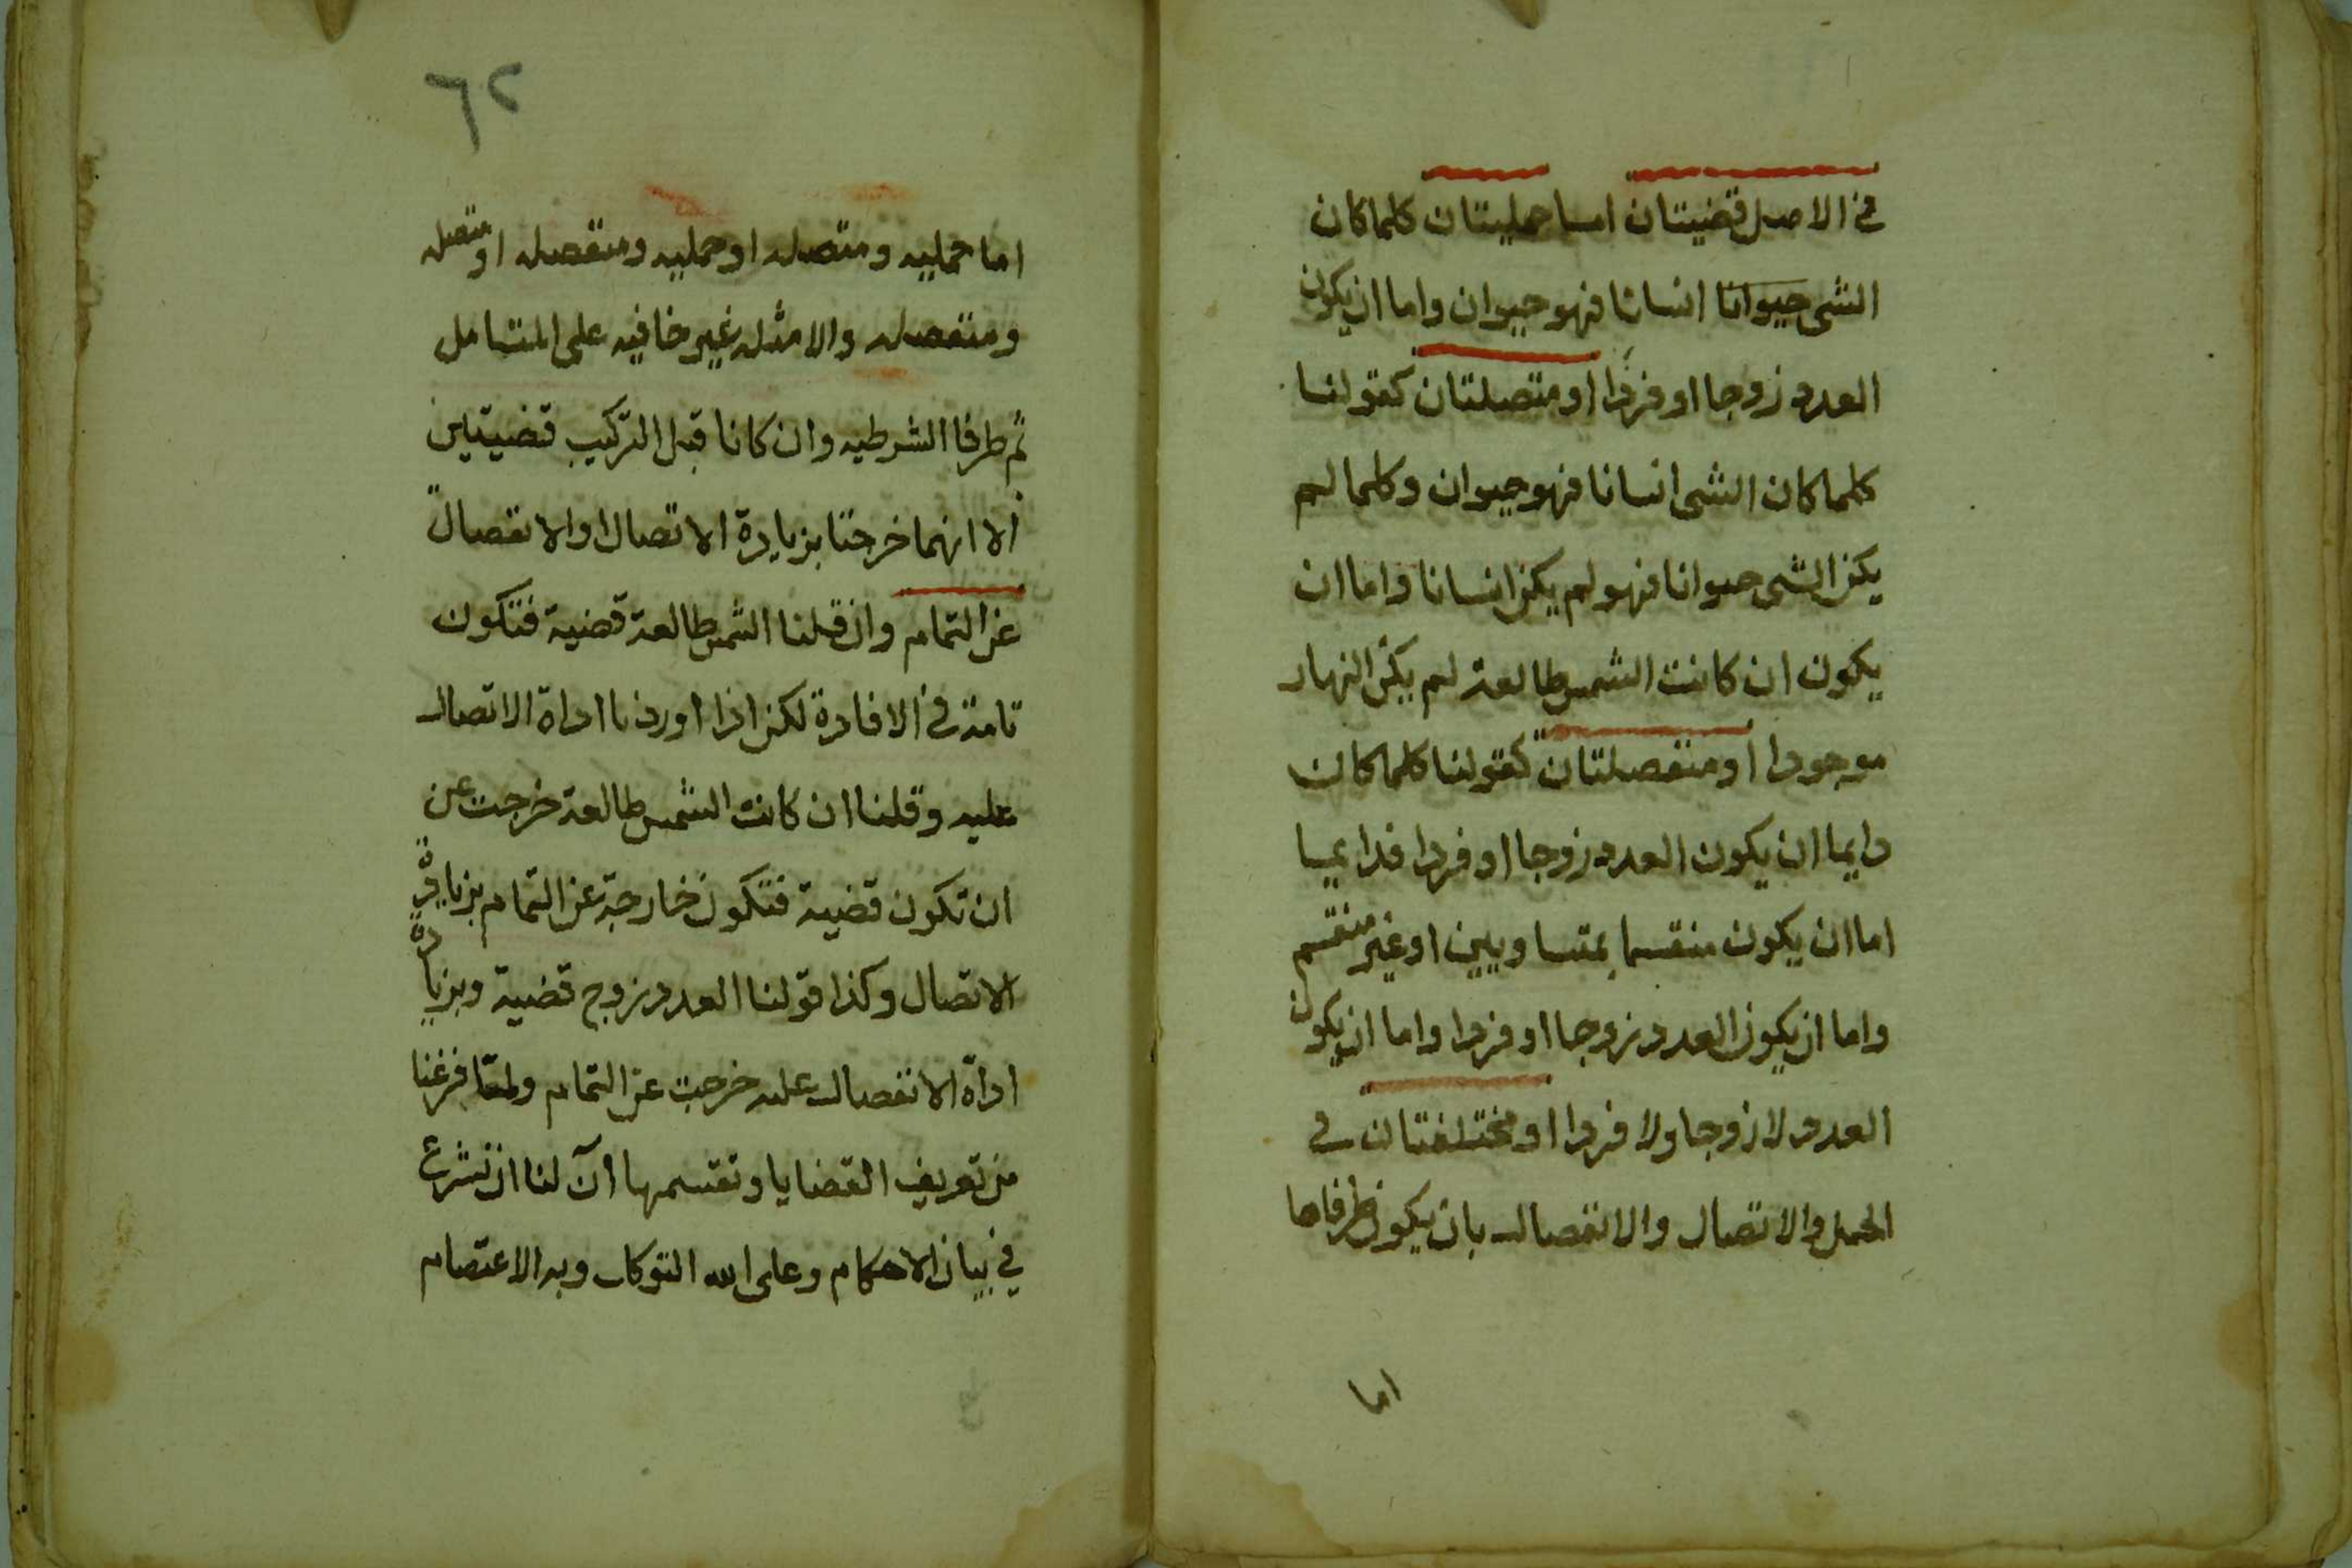 في الاصل قضيتان اما حمليتان كلما كان
الشى حيوانا انسانا فهو حيوان واما ان يكون
العدد زوجا او فردا او متصلتان كقولنا
كلما كان الشى انسانا فهو حيوان وكلما لم
يكن الشى حيوانا فهو لم يكن انسانا واما ان
يكون ان كانت الشمس طالعة لم يكن النهار
موجودا او منفصلتان كقولنا كلما كان
دايما ان يكون العدد زوجا او فردا فدايما
اما ان يكون منقسما بمتساويين او غير منقسم
واما ان يكون العدد زوجا او فردا واما ان يكون
العدد لا زوجا ولا فردا او مختلفتان في
الحمل والاتصال والانفصال بان يكون طرفاها
اما
٦٢
اما حمليه ومتصله او حمليه ومنفصله او متصله
ومنفصله والامثله غير خافيه على المتامل
ثم طرفا الشرطيه وان كانا قبل التركيب قضيتين
الا انهما خرجتا بزيادة الاتصال او الانفصال
عن التمام وان قلنا الشمس طالعة قضية فتكون
تامة في الافادة لكن اذا اوردنا اداة الاتصال
عليه وقلنا ان كانت الشمس طالعة خرجت عن
ان تكون قضية فتكون خارجة عن التمام بزيادة
الاتصال وكذا قولنا العدد زوج قضية وبزيادة
اداة الانفصال عليه خرجت عن التمام ولما فرغنا
من تعريف القضايا وتقسمها آن لنا ان نشرع
في بيان الاحكام وعلى الله التوكل وبه الاعتصام